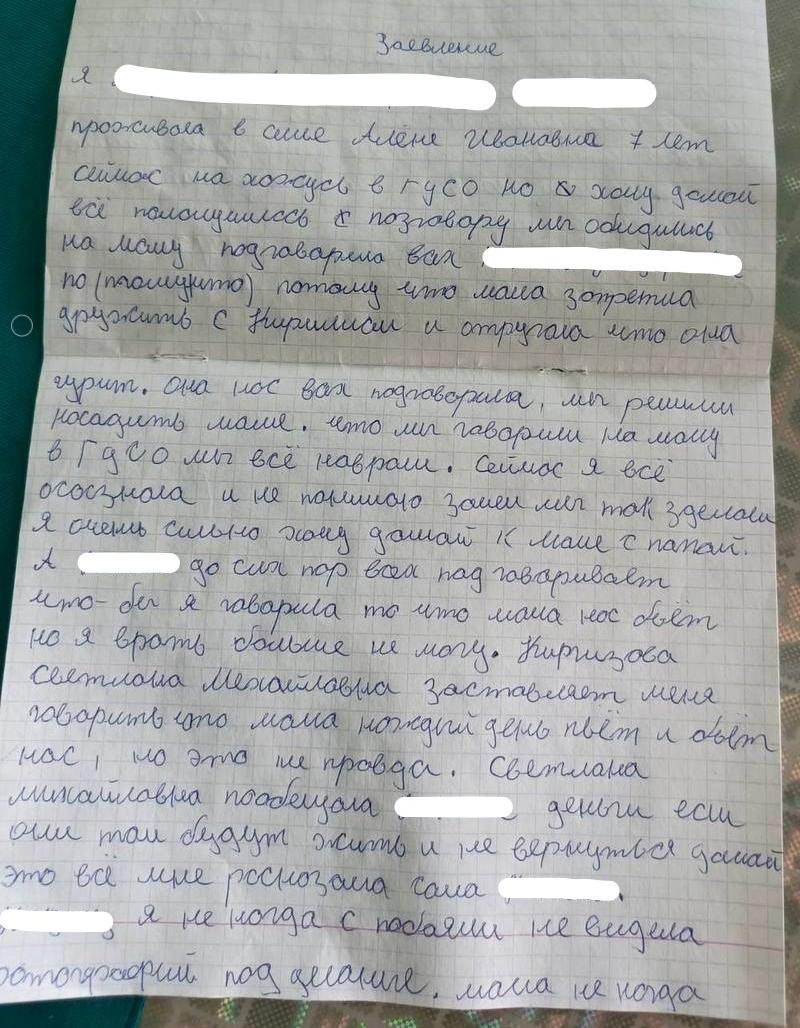 Заевление
Я
проживола в семе Алёне Ивановна 7 лет
сеймос на хожусь в ГУСО но я хочу домой
всё получилось с позговору мы обидимись
на маму подговарила вах
по (тломунто) потому что мама зопретила
дружить с Кириллом и отругала что она
курит. она нос вах подговорила, мы решили
носадить маме. что мы гаварили на маму
в ГУСО мы всё наврали. Сеймос я всё
ососзнала и не понимаю зачем мы так зделали
Я очень сильно хочу дамой к маме с папай.
А до сих пор всех под говаривает
что-бы я гаварила то что мама нос бьёт
но я врать больше не могу. Киргизова
Светлана Михайловна заставляет меня
говарить что мама каждый день пьёт и бьёт
нас, но это не правда. Светлана
михайловна пообещала деньги если
они там будут жить и не вернуться дамай
это всё мне росказала сама
я не когда с побоями не видела
фотографий под делание. мама не когда